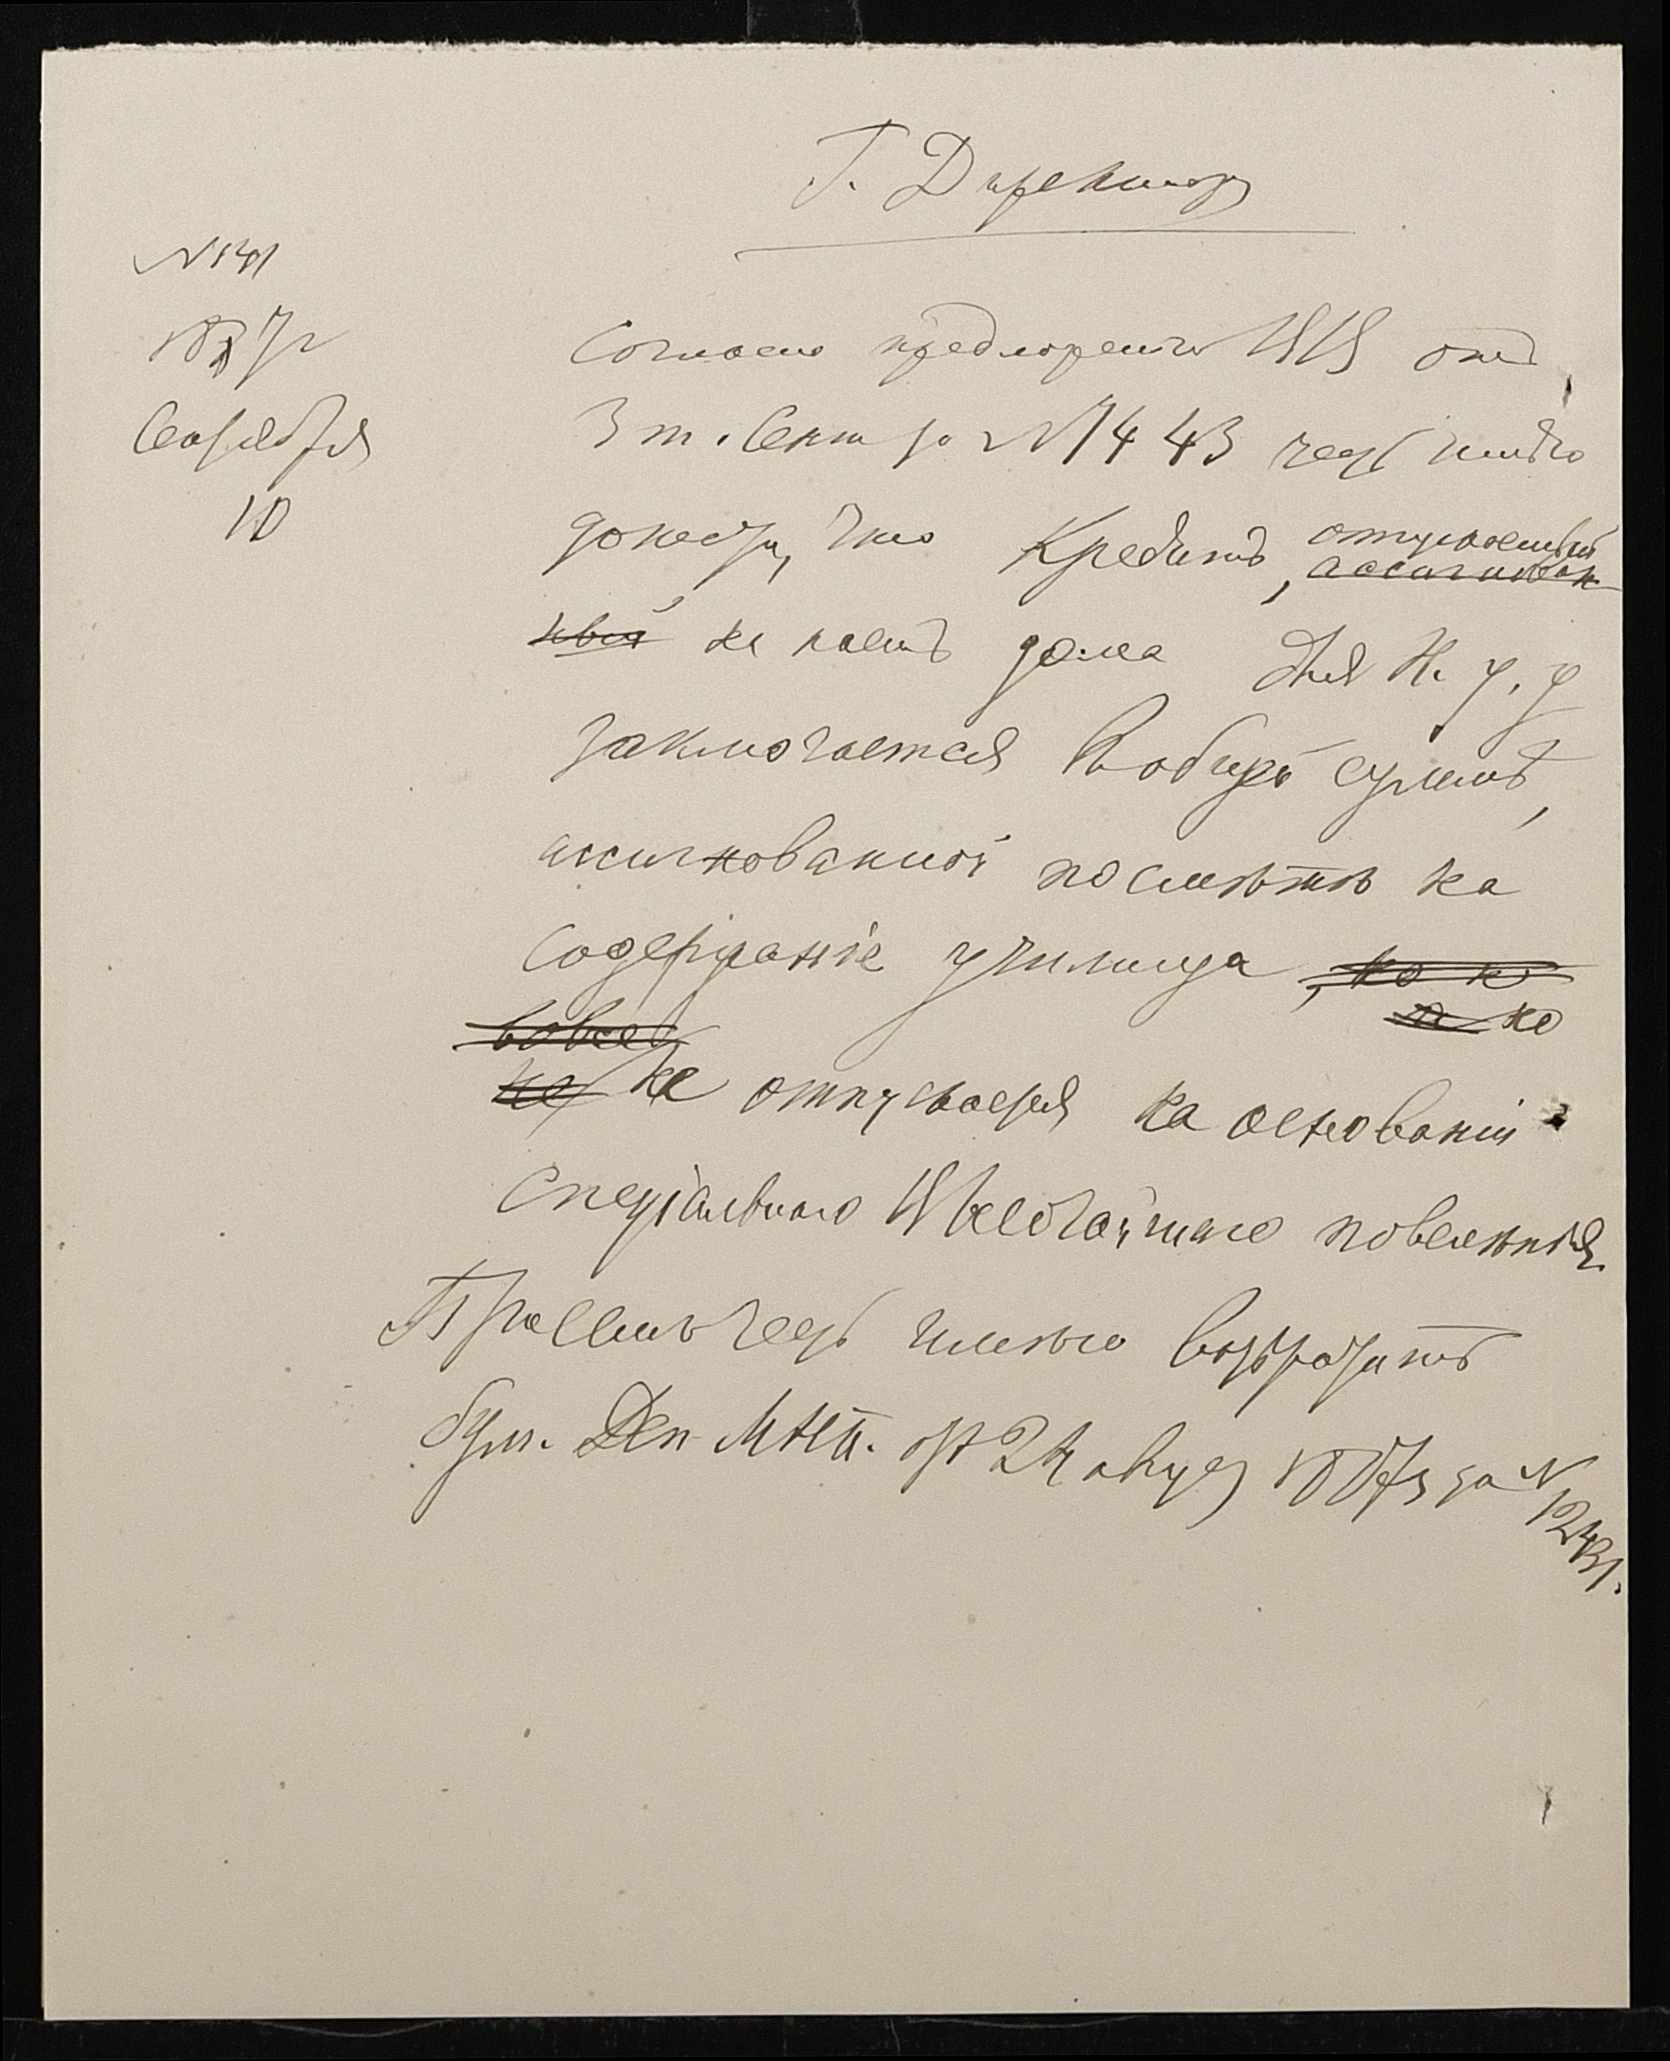 Г. Директору
№ 141
1887 г
Сентября
10
Согласно предложенію В. П. отъ
3 т. Сент за № 1443 честь имѣю
донести, что кредитъ, отпускаемый
ассигнован-
ный на наемъ дома для Н. у. у
заключается въ общей суммѣ,
ассигнованной по смѣтѣ на
содержаніе училища, но не
а не
вовсе
не не отпускается на основаніи
спеціальнаго Высочайшаго повелѣнія.
При семъ честь имѣю возвратить
бум. Деп. М. Н. П. отъ 24 авгус 1887 г за №
12431.